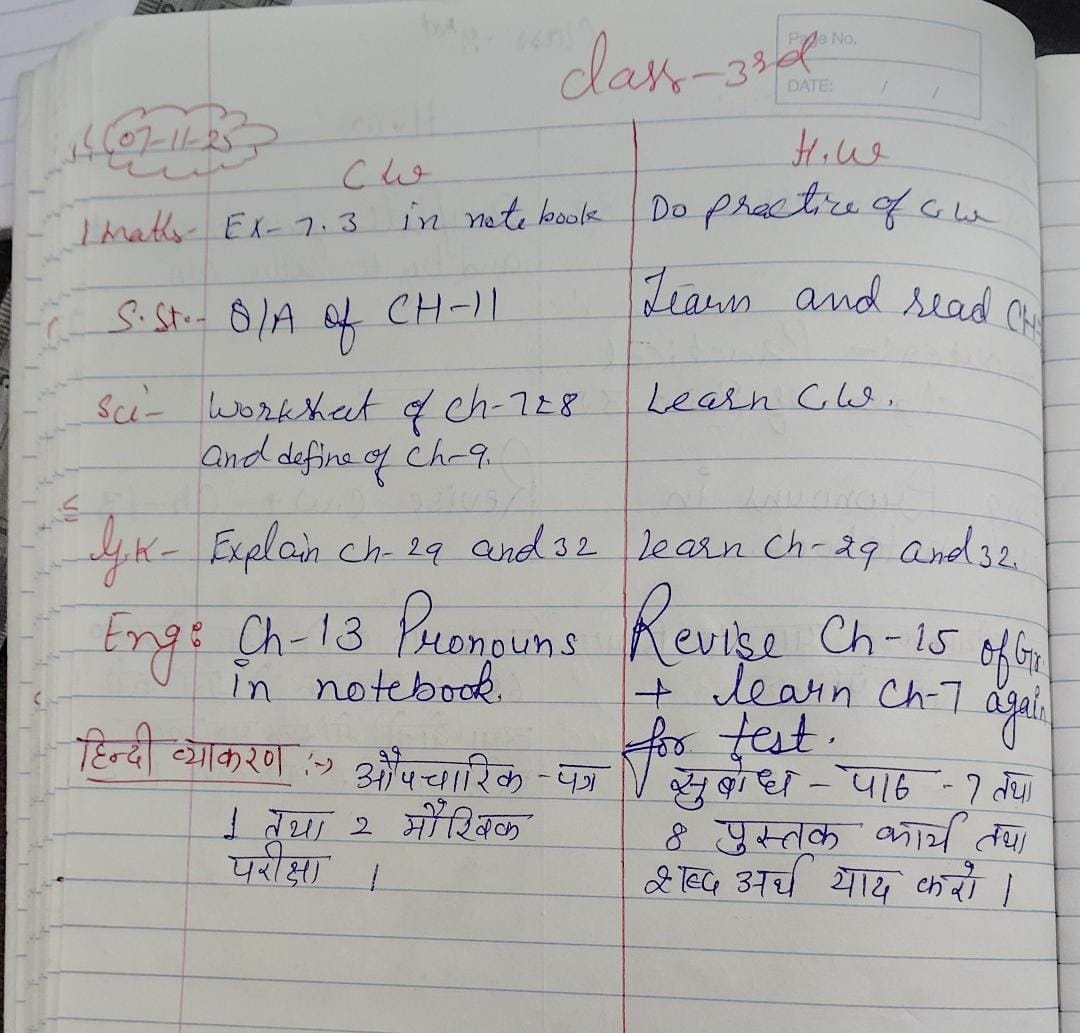 Page No.
DATE: / /
Class-3rd
07-11-25
C W
H.W
1 Maths- Ex- 7.3 in note book
Do practice of C.W
S.St.- Q/A of CH-11
Learn and read CH-
Sci- Worksheet of Ch-7 & 8
Learn C.W.
and define of Ch-9.
G.K- Explain Ch- 29 and 32
learn Ch- 29 and 32.
Eng: Ch-13 Pronouns
Revise Ch-15 of Gr
in notebook.
+ learn Ch-7 again
for test.
हिन्दी व्याकरण :-> औपचारिक - पत्र
सुबोध - पाठ - 7 तथा
1 तथा 2 मौखिक
8 पुस्तक कार्य तथा
परीक्षा ।
शब्द अर्थ याद करो ।